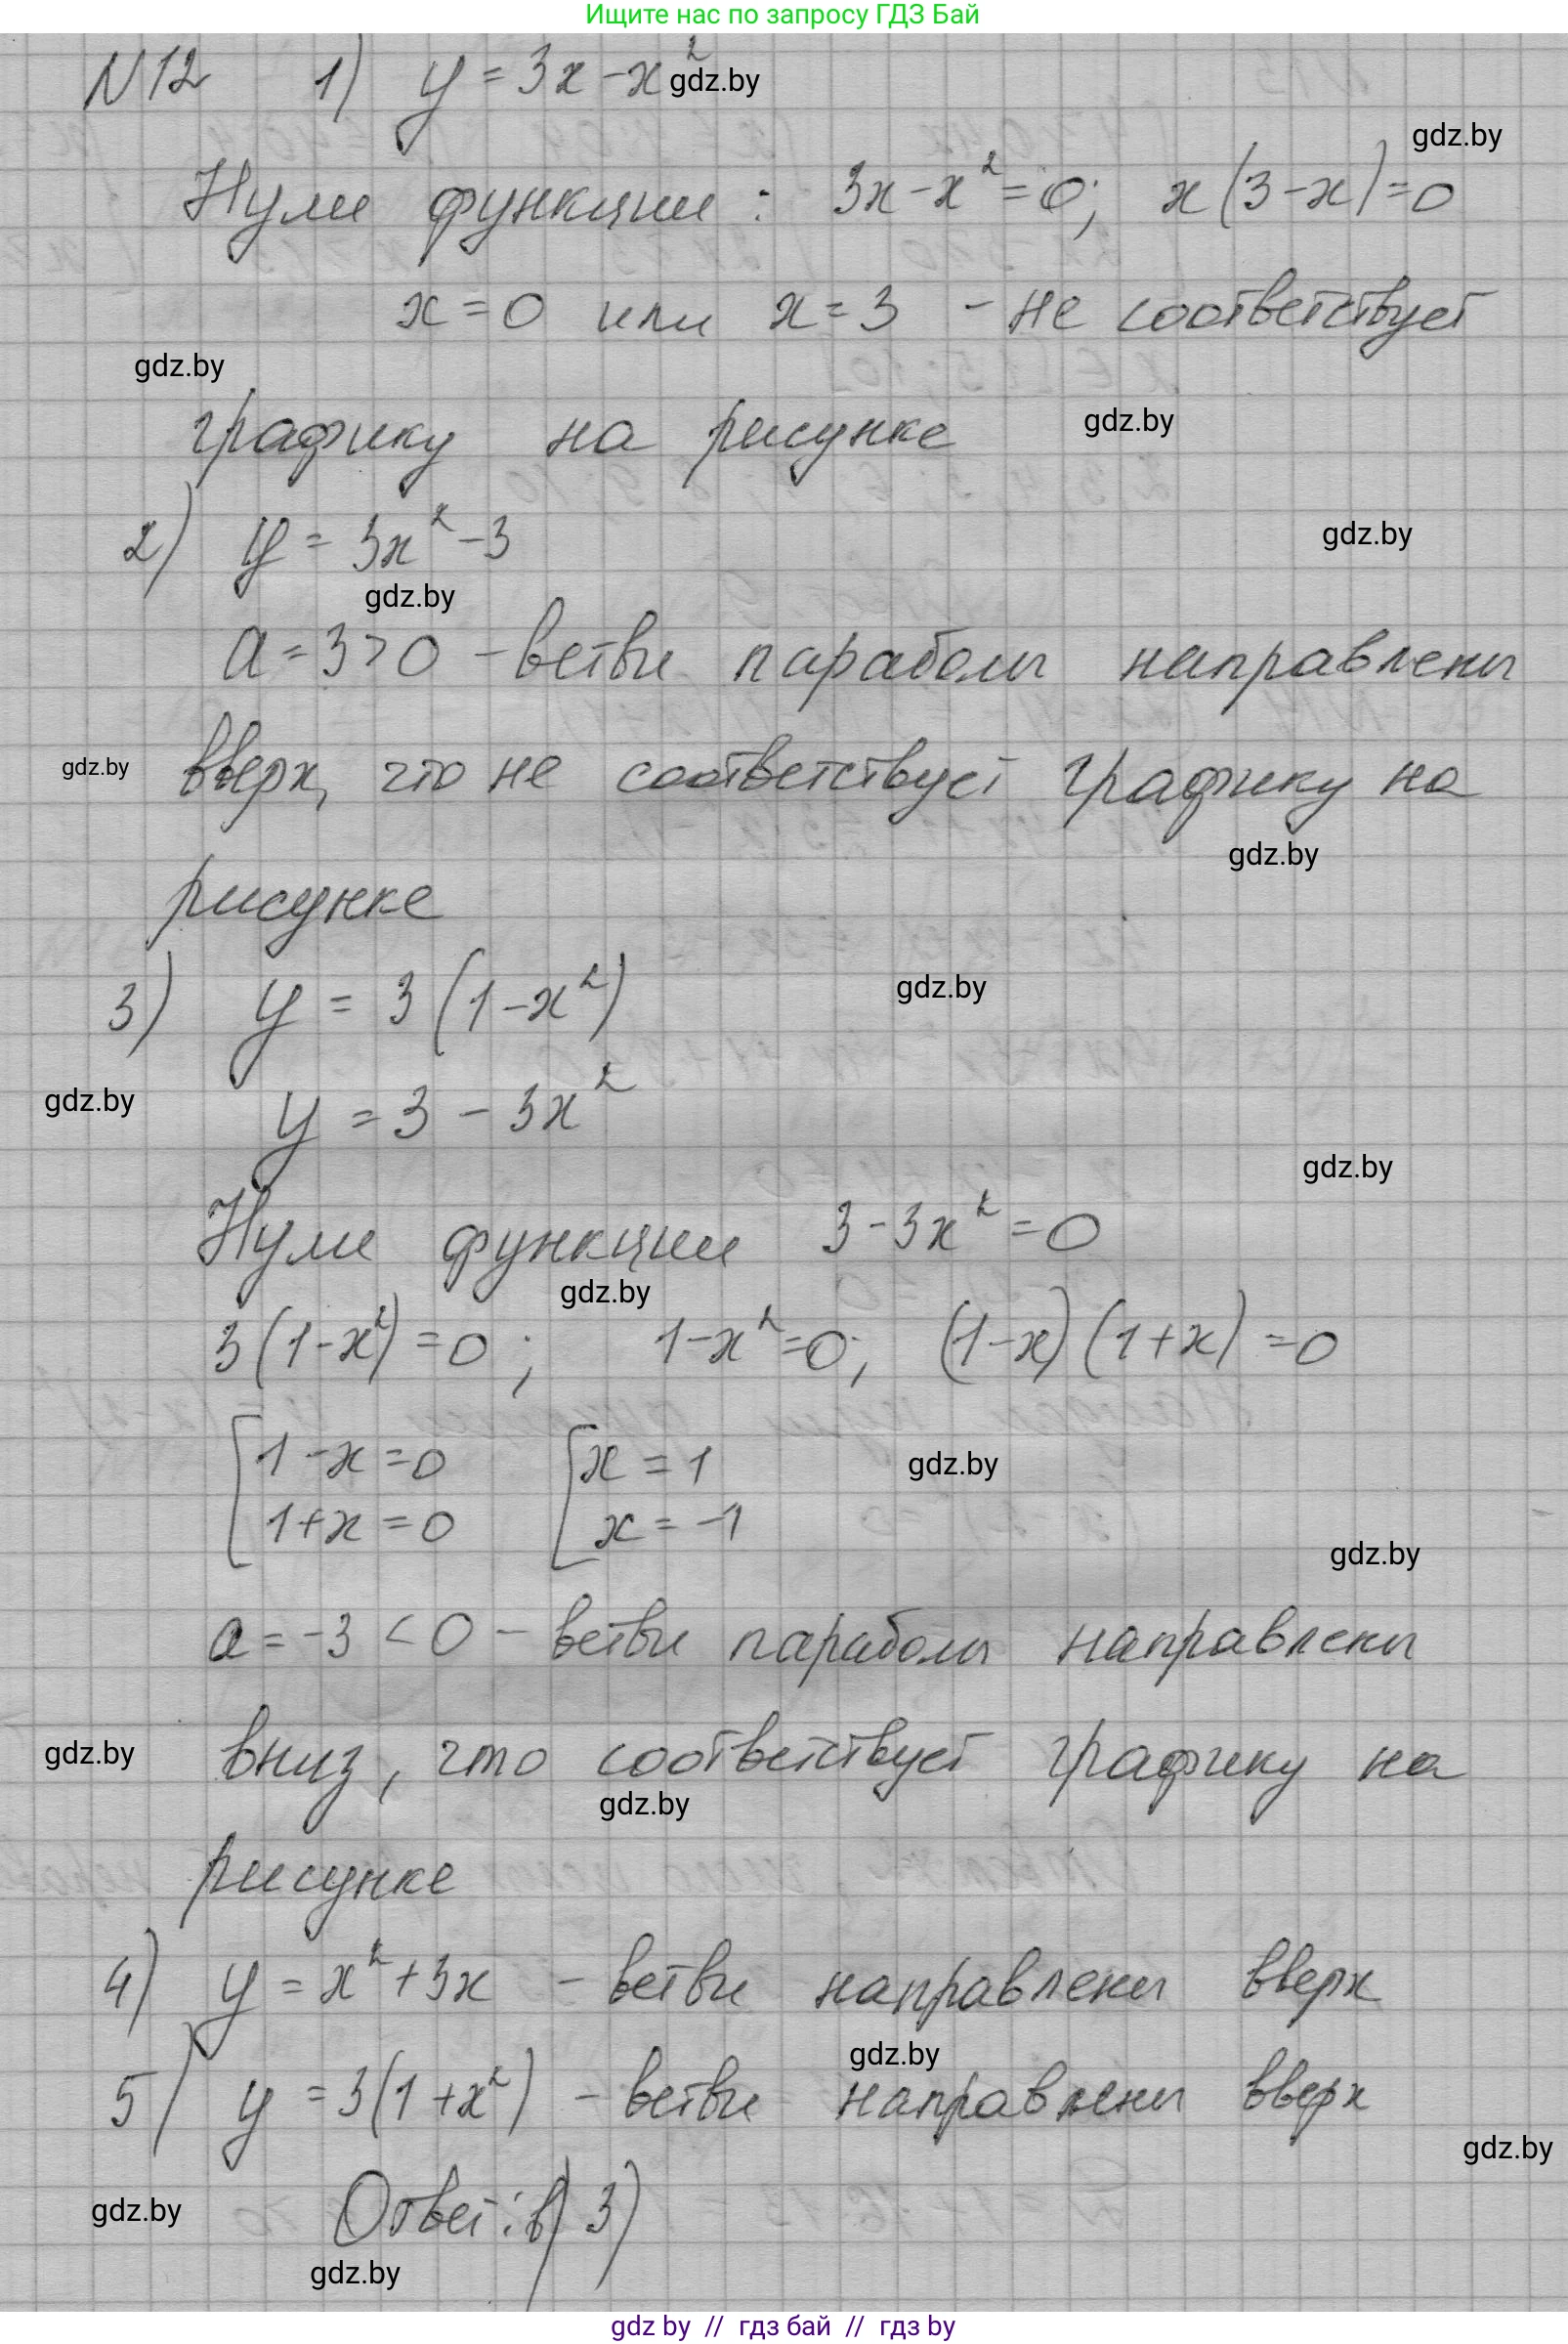 Ищите нас по запросу ГДЗ Бай
N12 1) y = 3x - x² gdz.by
gdz.by
Нули функции: 3x - x² = 0; x(3 - x) = 0
x = 0 или x = 3 - не соответствует
gdz.by
графику на рисунке gdz.by
2) y = 3x² - 3 gdz.by
gdz.by
a = 3 > 0 - ветви параболы направлены
gdz.by вверх, что не соответствует графику на
gdz.by
рисунке
3) y = 3(1 - x²) gdz.by
gdz.by y = 3 - 3x²
gdz.by
Нули функции 3 - 3x² = 0
gdz.by
3(1 - x²) = 0; 1 - x² = 0; (1 - x)(1 + x) = 0
[1 - x = 0 [x = 1 gdz.by
1 + x = 0 x = -1
gdz.by
a = -3 < 0 - ветви параболы направлены
gdz.by вниз, что соответствует графику на
gdz.by
рисунке
4) y = x² + 3x - ветви направлены вверх
gdz.by
5) y = 3(1 + x²) - ветви направлены вверх
gdz.by
gdz.by Ответ: в) 3)
gdz.by
gdz by // гдз бай // гдз by